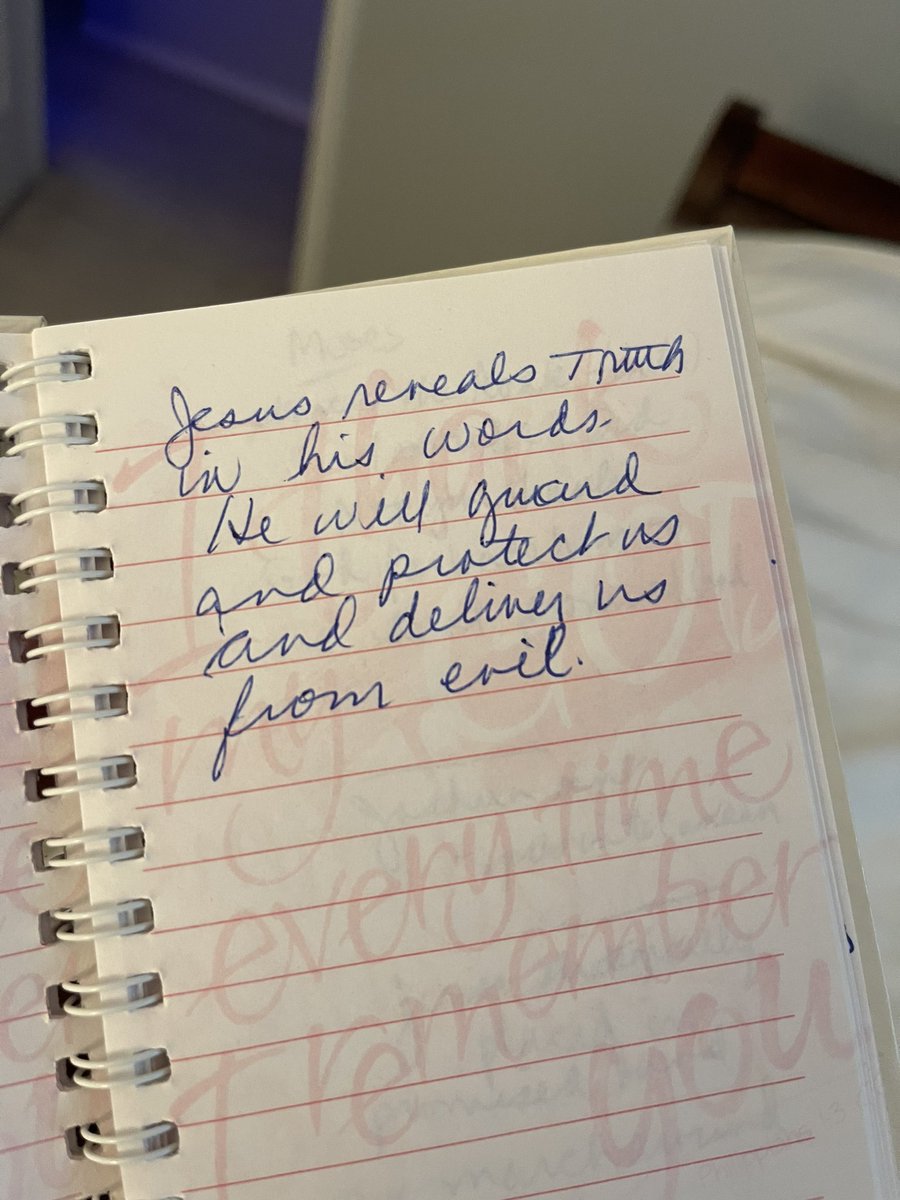 Jesus reveals Truth
in his words.
He will guard
and protect us
and deliver us
from evil.
I thank
my God
every time
I remember
you
Philippians 1:3